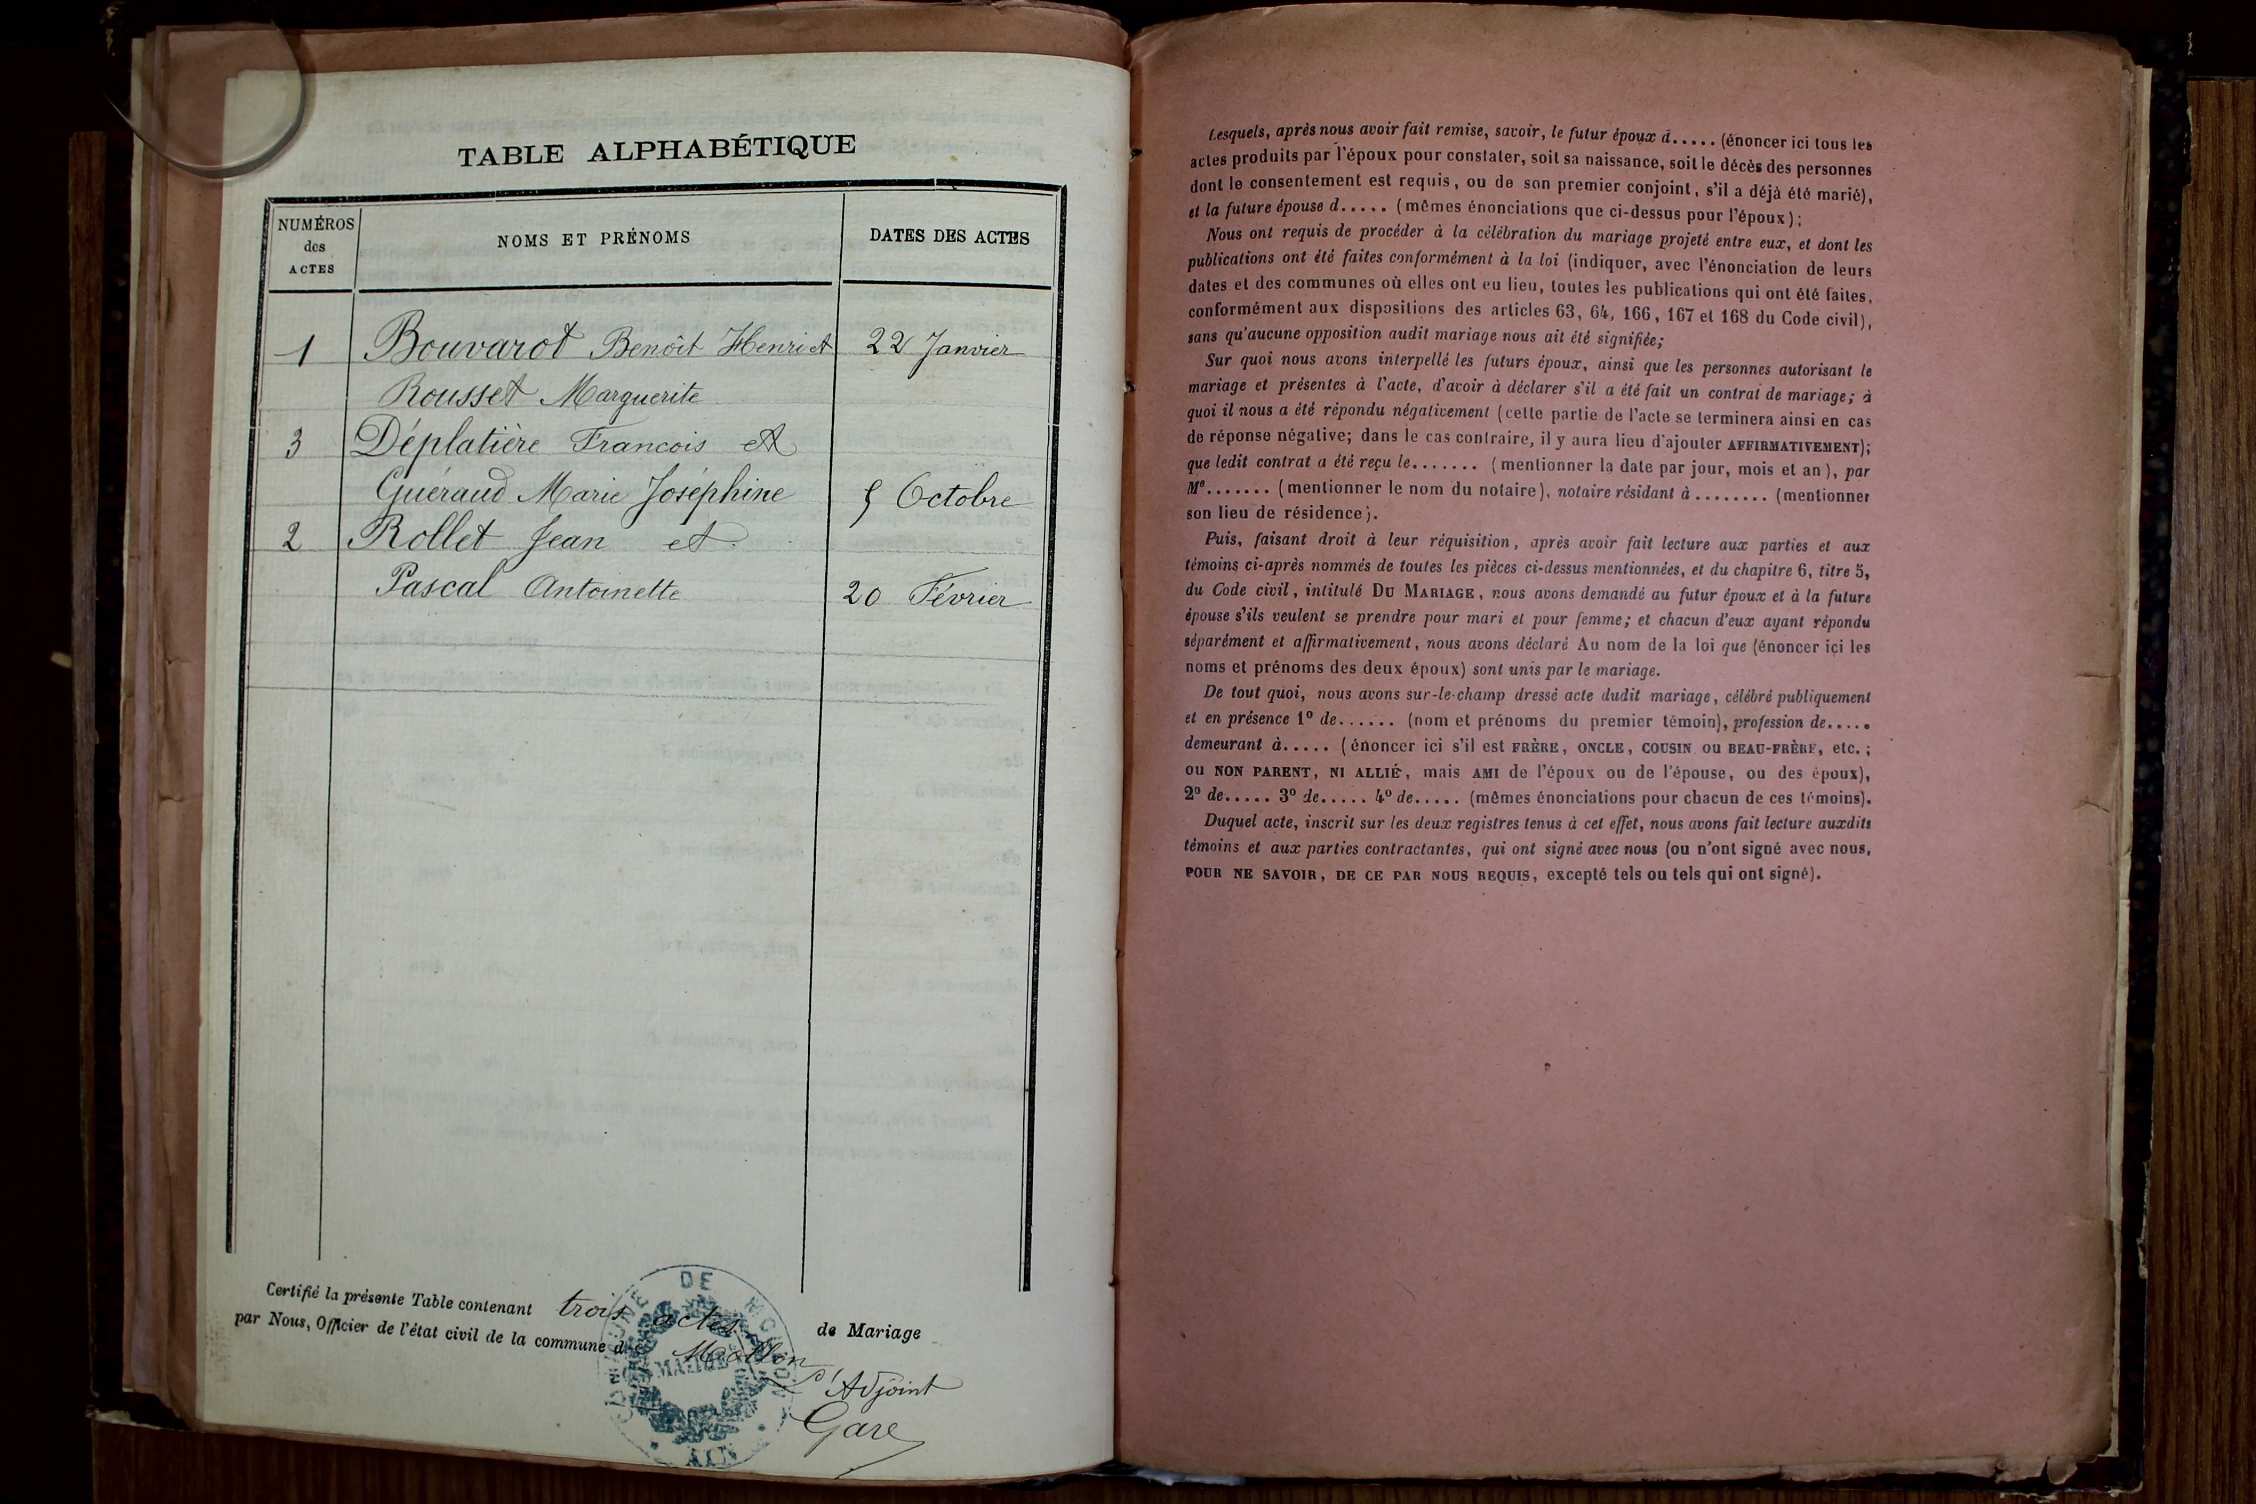 TABLE ALPHABÉTIQUE
NUMÉROS
des
ACTES
NOMS ET PRÉNOMS
DATES DES ACTES
1 Bouvarot Benôit Henri et 22 Janvier
Rousset Marguerite
3 Déplatière Francois et
Guéraud Marie Joséphine 5 Octobre
2 Rollet Jean et
Pascal Antoinette 20 Février
Certifié la présente Table contenant trois actes de Mariage
par Nous, Officier de l'état civil de la commune de Mollon
L'Adjoint
Gare
COMMUNE DE MOLLON
MAIRIE
AIN
Lesquels, après nous avoir fait remise, savoir, le futur époux d..... (énoncer ici tous les
actes produits par l'époux pour constater, soit sa naissance, soit le décès des personnes
dont le consentement est requis, ou de son premier conjoint, s'il a déjà été marié),
et la future épouse d..... (mêmes énonciations que ci-dessus pour l'époux);
Nous ont requis de procéder à la célébration du mariage projeté entre eux, et dont les
publications ont été faites conformément à la loi (indiquer, avec l'énonciation de leurs
dates et des communes où elles ont eu lieu, toutes les publications qui ont été faites,
conformément aux dispositions des articles 63, 64, 166, 167 et 168 du Code civil),
sans qu'aucune opposition audit mariage nous ait été signifiée;
Sur quoi nous avons interpellé les futurs époux, ainsi que les personnes autorisant le
mariage et présentes à l'acte, d'avoir à déclarer s'il a été fait un contrat de mariage; à
quoi il nous a été répondu négativement (cette partie de l'acte se terminera ainsi en cas
de réponse négative; dans le cas contraire, il y aura lieu d'ajouter AFFIRMATIVEMENT);
que ledit contrat a été reçu le....... (mentionner la date par jour, mois et an), par
Me....... (mentionner le nom du notaire), notaire résidant à ........ (mentionner
son lieu de résidence).
Puis, faisant droit à leur réquisition, après avoir fait lecture aux parties et aux
témoins ci-après nommés de toutes les pièces ci-dessus mentionnées, et du chapitre 6, titre 5,
du Code civil, intitulé DU MARIAGE, nous avons demandé au futur époux et à la future
épouse s'ils veulent se prendre pour mari et pour femme; et chacun d'eux ayant répondu
séparément et affirmativement, nous avons déclaré Au nom de la loi que (énoncer ici les
noms et prénoms des deux époux) sont unis par le mariage.
De tout quoi, nous avons sur-le-champ dressé acte dudit mariage, célébré publiquement
et en présence 1º de...... (nom et prénoms du premier témoin), profession de.....
demeurant à..... (énoncer ici s'il est FRÈRE, ONCLE, COUSIN ou BEAU-FRÈRE, etc.;
ou NON PARENT, NI ALLIÉ, mais AMI de l'époux ou de l'épouse, ou des époux),
2º de..... 3º de..... 4º de..... (mêmes énonciations pour chacun de ces témoins).
Duquel acte, inscrit sur les deux registres tenus à cet effet, nous avons fait lecture auxdits
témoins et aux parties contractantes, qui ont signé avec nous (ou n'ont signé avec nous,
POUR NE SAVOIR, DE CE PAR NOUS REQUIS, excepté tels ou tels qui ont signé).